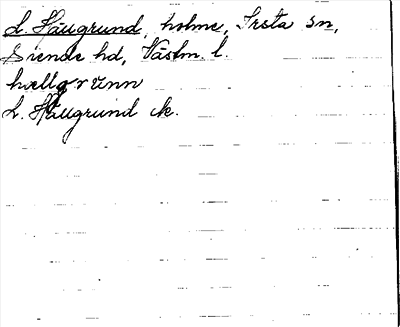 L. Hällgrund, holme, Irsta sn,
Siende hd, Västm. l.
hællgrunn
L. Hällgrund ek.